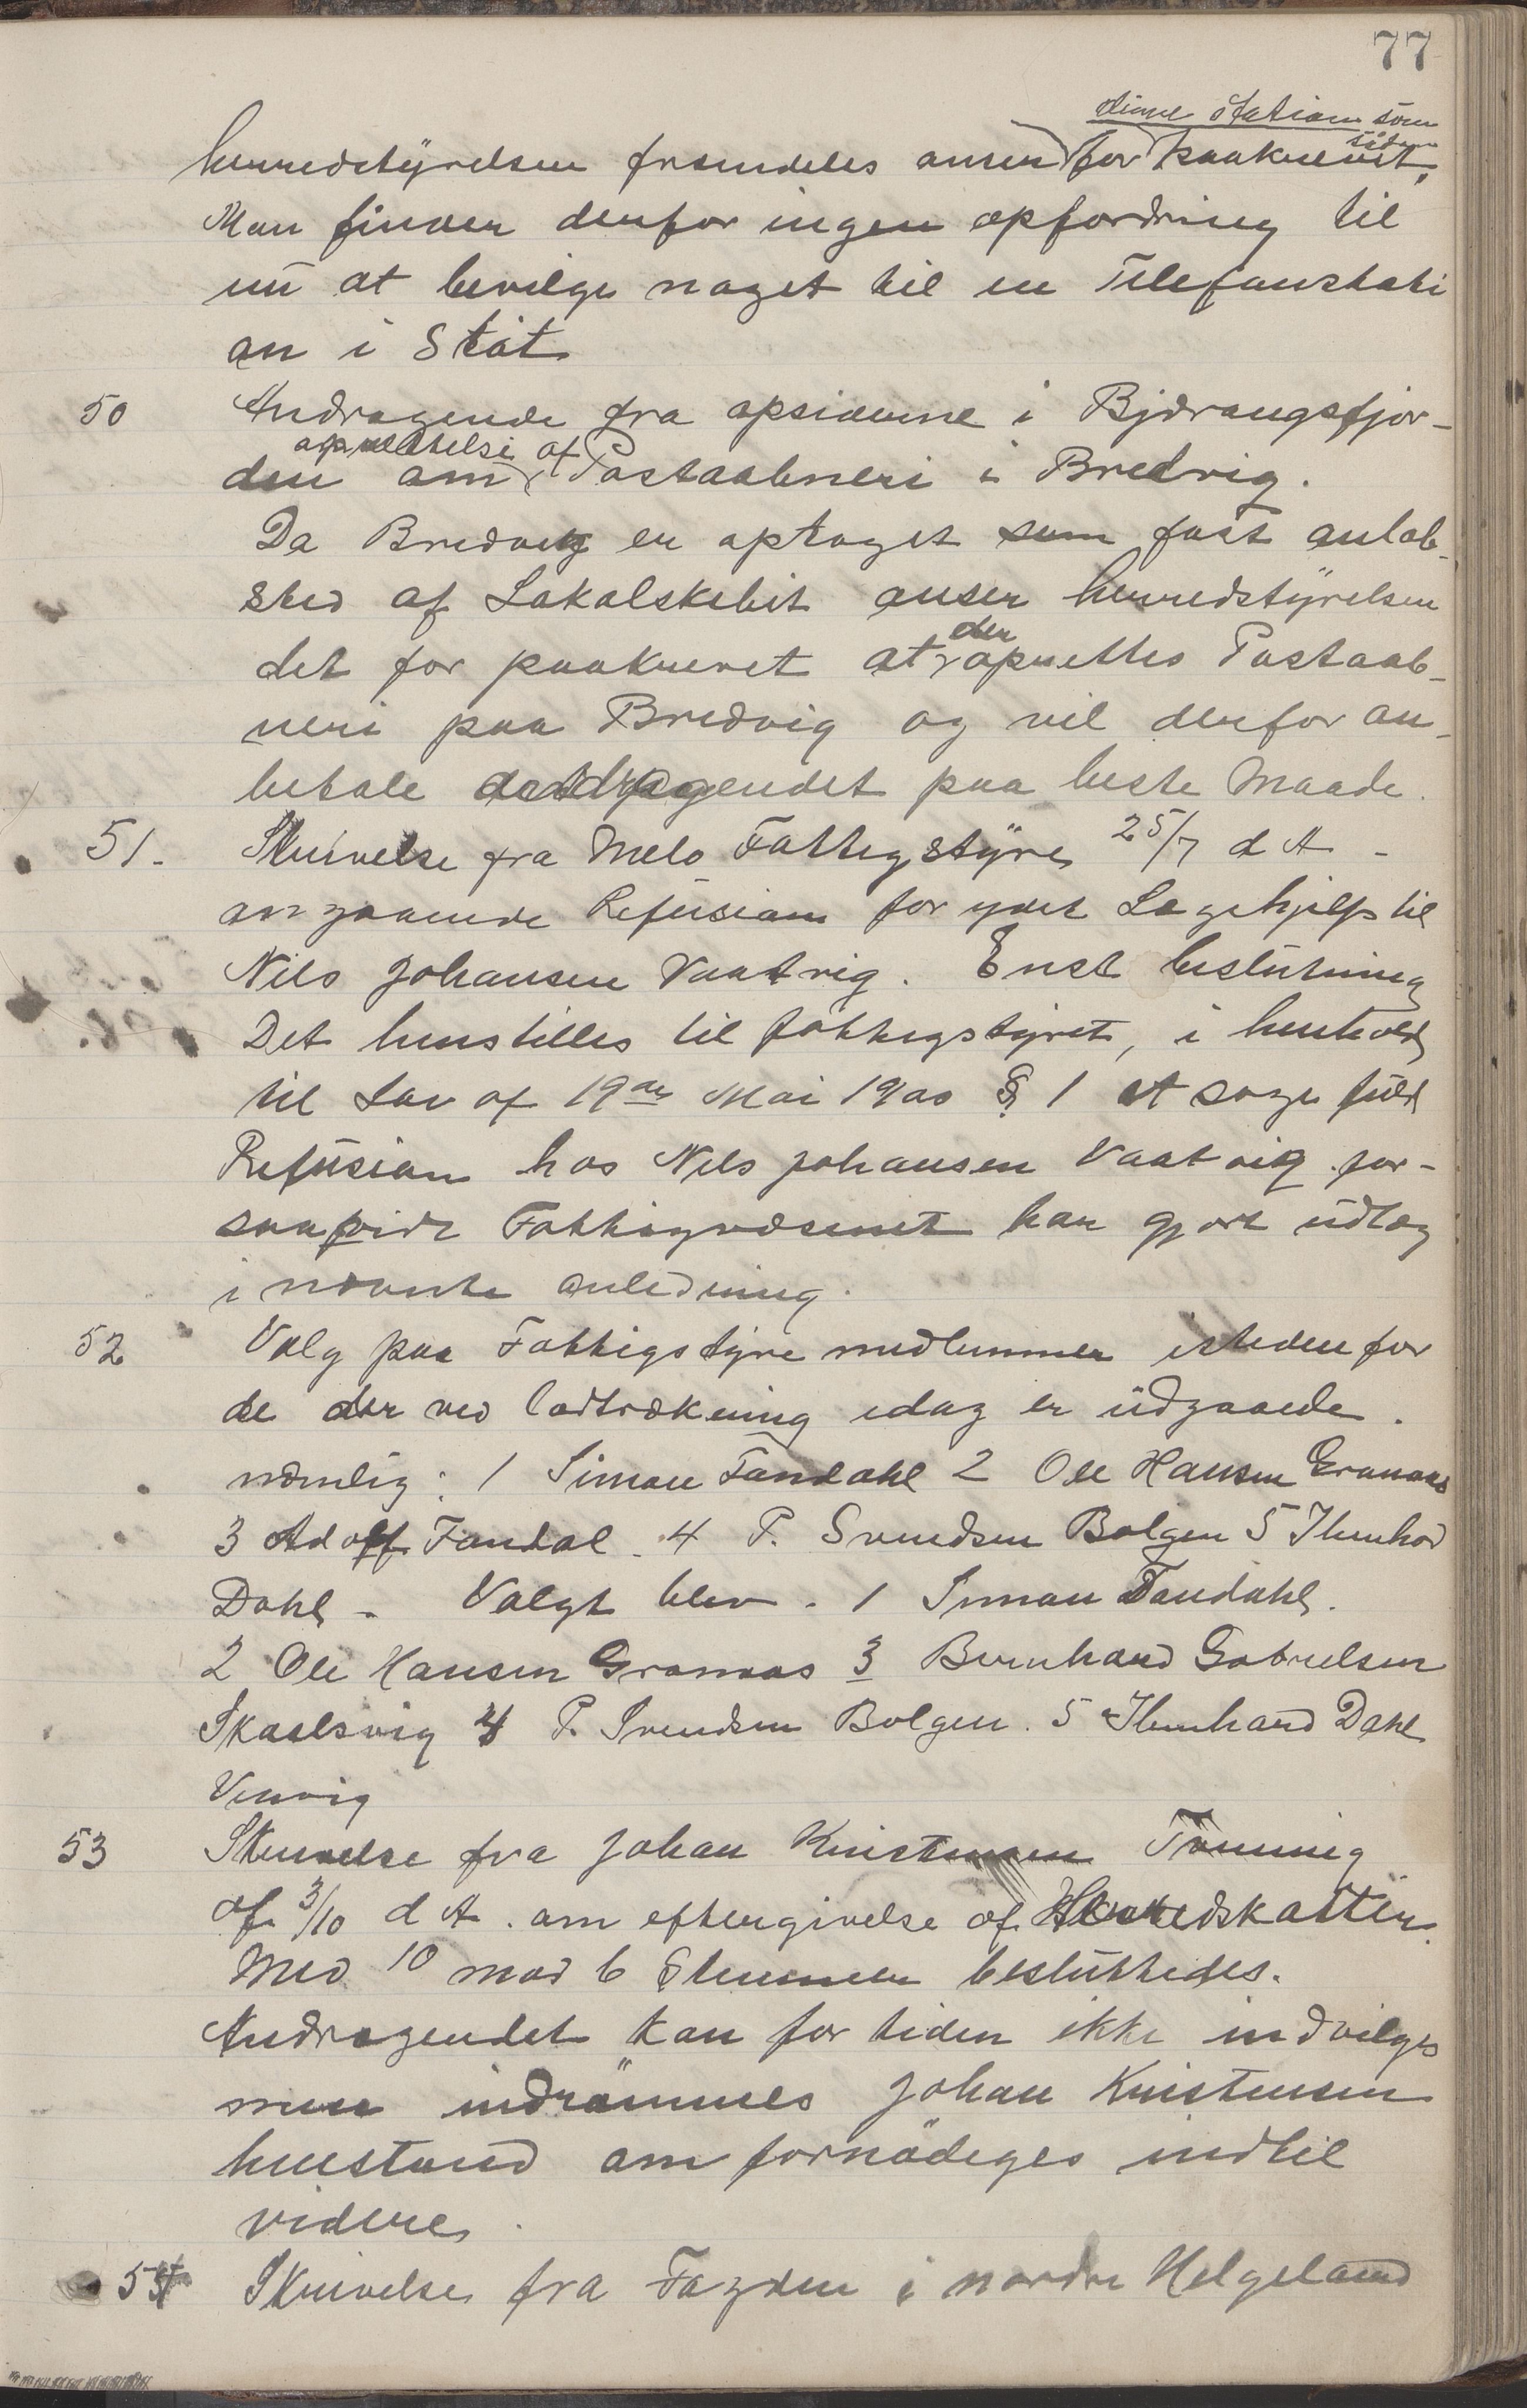 77
denne Station som
herredstÿrelsen fremdeles anser for paakrevet,
Man finder derfor ingen opfordring til
nu at bevilge noget til en Telefonstati
on i Støt
50 Andragende fra opsiderne i Bjærangsfjor-
oprettelse af
den om Postaabneri i Bredvig.
Da Bredvig er optaget som fast anløb-
sted af Lokalskibet anser herredstÿrelsen
der
det for paakrevet at oprettes Postaab-
neri paa Bredvig og vil derfor an-
befale andragendet paa beste Maade.
51. Skrivelse fra Melø Fattigstÿre 25/7 d A -
angaaende Refusion for ydet Lægehjelp til
Nils Johansen Vaatvig. Enst beslutning
Det henstilles til fattigstyret, i henhold
til Lov af 19de Mai 1900 § 1 at søge fuld
Refusion hos Nils Johansen Vaatvig for-
saavidt Fattigvæsenet har gjort udlæg
i nævnte anledning.
52 Valg paa Fattigstyremedlemmer istedenfor
de der ved lodtrækning idag er udgaaede.
nemlig: 1 Simon Tøndahl 2 Ole Hansen Grønaas
3 Adolf Føndal. 4 P. Svendsen Bolgen 5 Ihenhard
Dahl - Valgt blev. 1 Simon Tøndahl.
2 Ole Hansen Grønaas 3 Bernhard Gabrielsen
Skaalsvig 4 P. Svendsen Bolgen. 5 Ihenhard Dahl
Venvig
53 Skrivelse fra Johan Kristensen
af 3/10 d A. om eftergivelse af Herredskatten.
Med 10 mod 6 Stemmer besluttedes.
Andragendet kan for tiden ikke indvilges
men indrømmes Johan Kristensen
henstand om fornødiges indtil
videre.
54 Skrivelse fra Fogden i nordre Helgeland